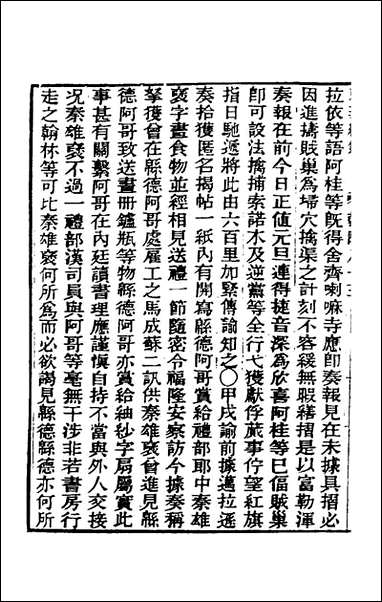 拉依等語阿桂等旣得舍齊喇嘛寺應卽奏報見在未據具摺必
因進擣賊巢爲埽穴擒渠之計刻不容緩無暇繕摺是以富勒渾
奏報在前今日正値元旦連得捷音深爲欣喜阿桂等已偪賊巢
卽可設法擒捕索諾木及逆黨等全行弋獲獻俘蕆事佇望紅旗
指日馳遞將此由六百里加緊傳諭知之○甲戌諭前據邁拉遜
奏拾獲匿名揭帖一紙內有開寫緜德阿哥賞給禮部郎中秦雄
襃字畫食物並經相見送禮一節隨密令福隆安察訪今據奏稱
拏獲曾在緜德阿哥處雇工之馬成蘇二訊供秦雄襃曾進見緜
德阿哥致送畫冊鑪瓶等物緜德阿哥亦賞給紬紗字扇屬實此
事甚有關繫阿哥在內廷讀書理應謹愼自持不當與外人交接
况秦雄襃不過一禮部漢司員與阿哥等毫無干涉非若書房行
走之翰林等可比秦雄襃何所爲而必欲謁見緜德緜德亦何所